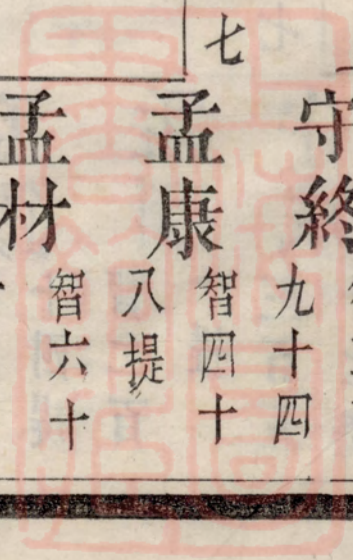 七
守終
九十四
孟康
智四十
八提
孟材
智六十